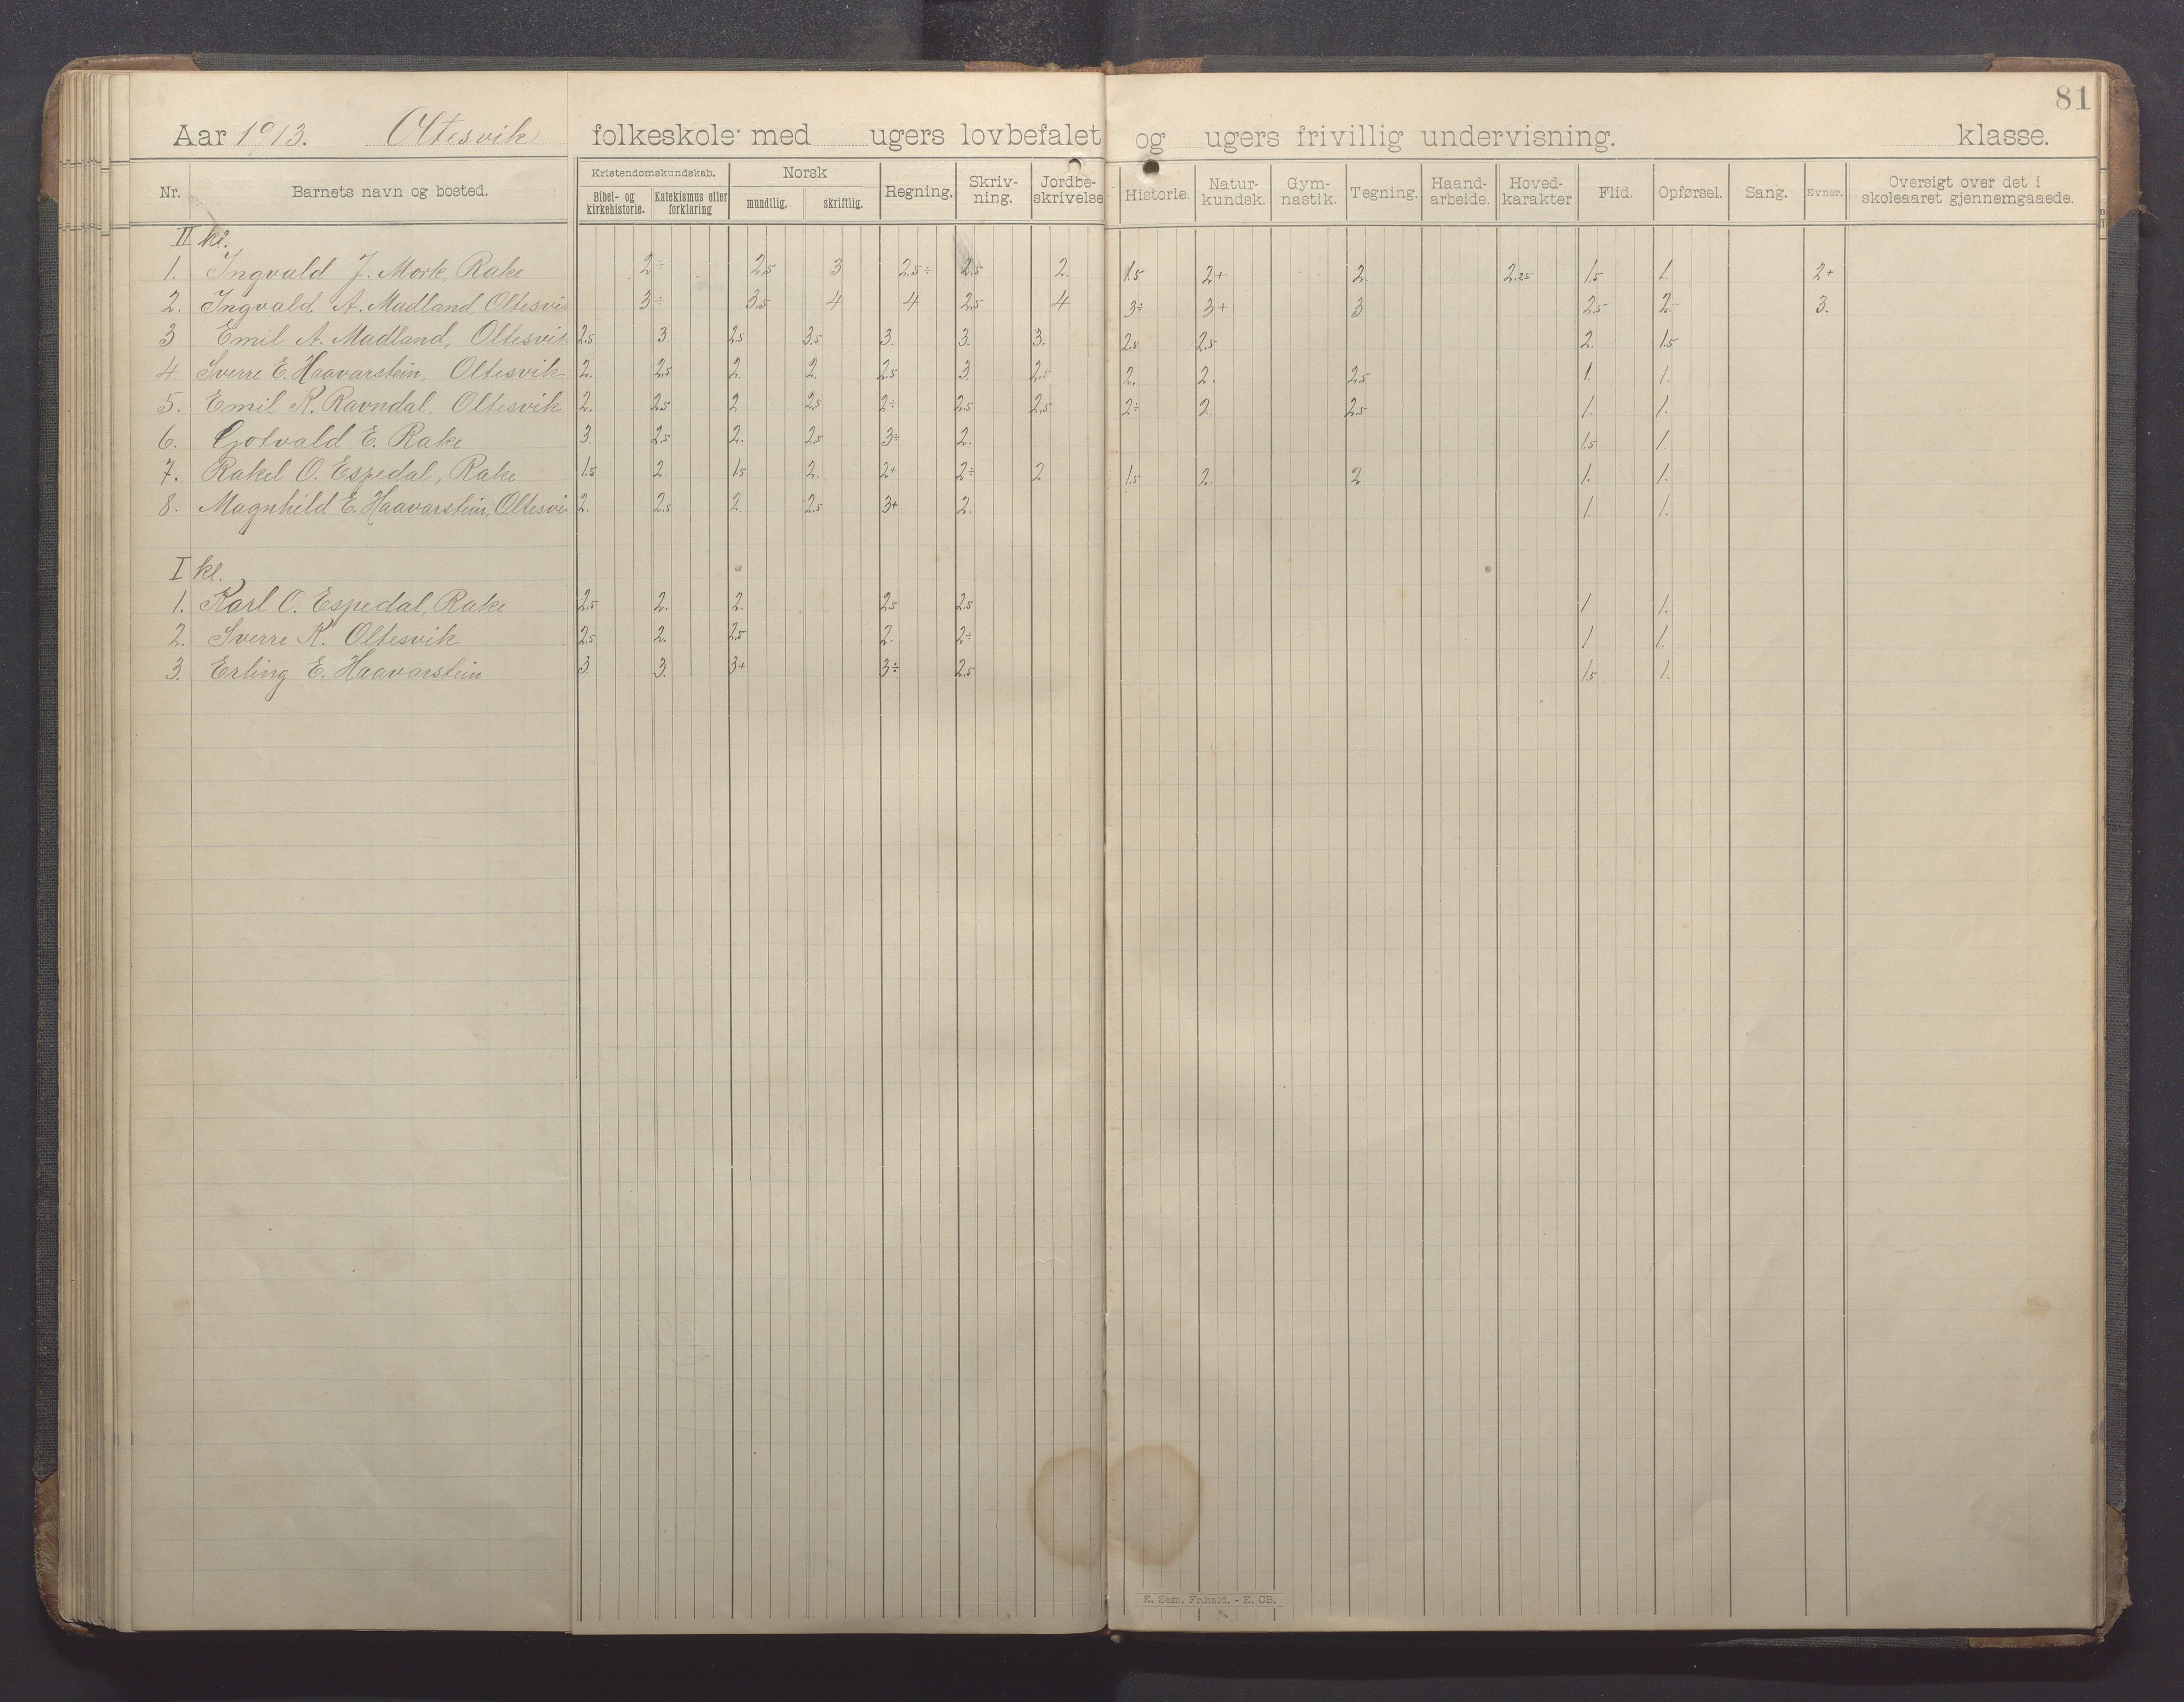 81
Aar 1913. Oltesvik folkeskole med ugers lovbefalet og ugers frivillig undervisning. klasse.
Nr. Barnets navn og bosted. Kristendomskundskab. Bibel- og kirkehistorie. Katekismus eller forklaring Norsk mundtlig. skriftlig. Regning. Skriv-ning. Jordbe-skrivelse Historie. Natur-kundsk. Gym-nastik. Tegning. Haand-arbeide. Hoved-karakter Flid. Opførsel. Sang. Evner. Oversigt over det i skoleaaret gjennemgaaede.
II kl.
1. Ingvald J. Mork, Rake 2÷ 2.5 3 2.5÷ 2.5 2. 1.5 2+ 2. 2.25 1.5 1. 2+
2. Ingvald A. Madland, Oltesvik 3÷ 3.5 4 4 2.5 4 3÷ 3+ 3 2.5 2 3.
3 Emil A. Madland, Oltesvik 2.5 3. 2.5 3.5 3. 3. 3. 2.5 2.5 2. 1.5
4 Sverre E. Haavarstein, Oltesvik 2. 2.5 2. 2. 2.5 3. 2.5 2. 2. 2.5 1. 1.
5. Emil K. Ravndal, Oltesvik 2. 2.5 2 2.5 2÷ 2.5 2.5 2÷ 2. 2.5 1. 1.
6. Gotvald E. Rake 3. 2.5 2. 2.5 3÷ 2. 1.5 1.
7. Rakel O. Espedal, Rake 1.5 2. 1.5 2. 2+ 2÷ 2 1.5 2. 2 1. 1.
8. Magnhild E. Haavarstein, Oltesvi 2. 2.5 2. 2.5 3+ 2. 1. 1.
I kl.
1. Karl O. Espedal, Rake 2.5 2. 2. 2.5 2.5 1 1.
2. Sverre K. Oltesvik 2.5 2. 2.5 2. 2÷ 1 1.
3. Erling E. Haavarstein 3. 3. 3+ 3÷ 2.5 1.5 1.
E. Sem. Fr.hald. - E. CB.